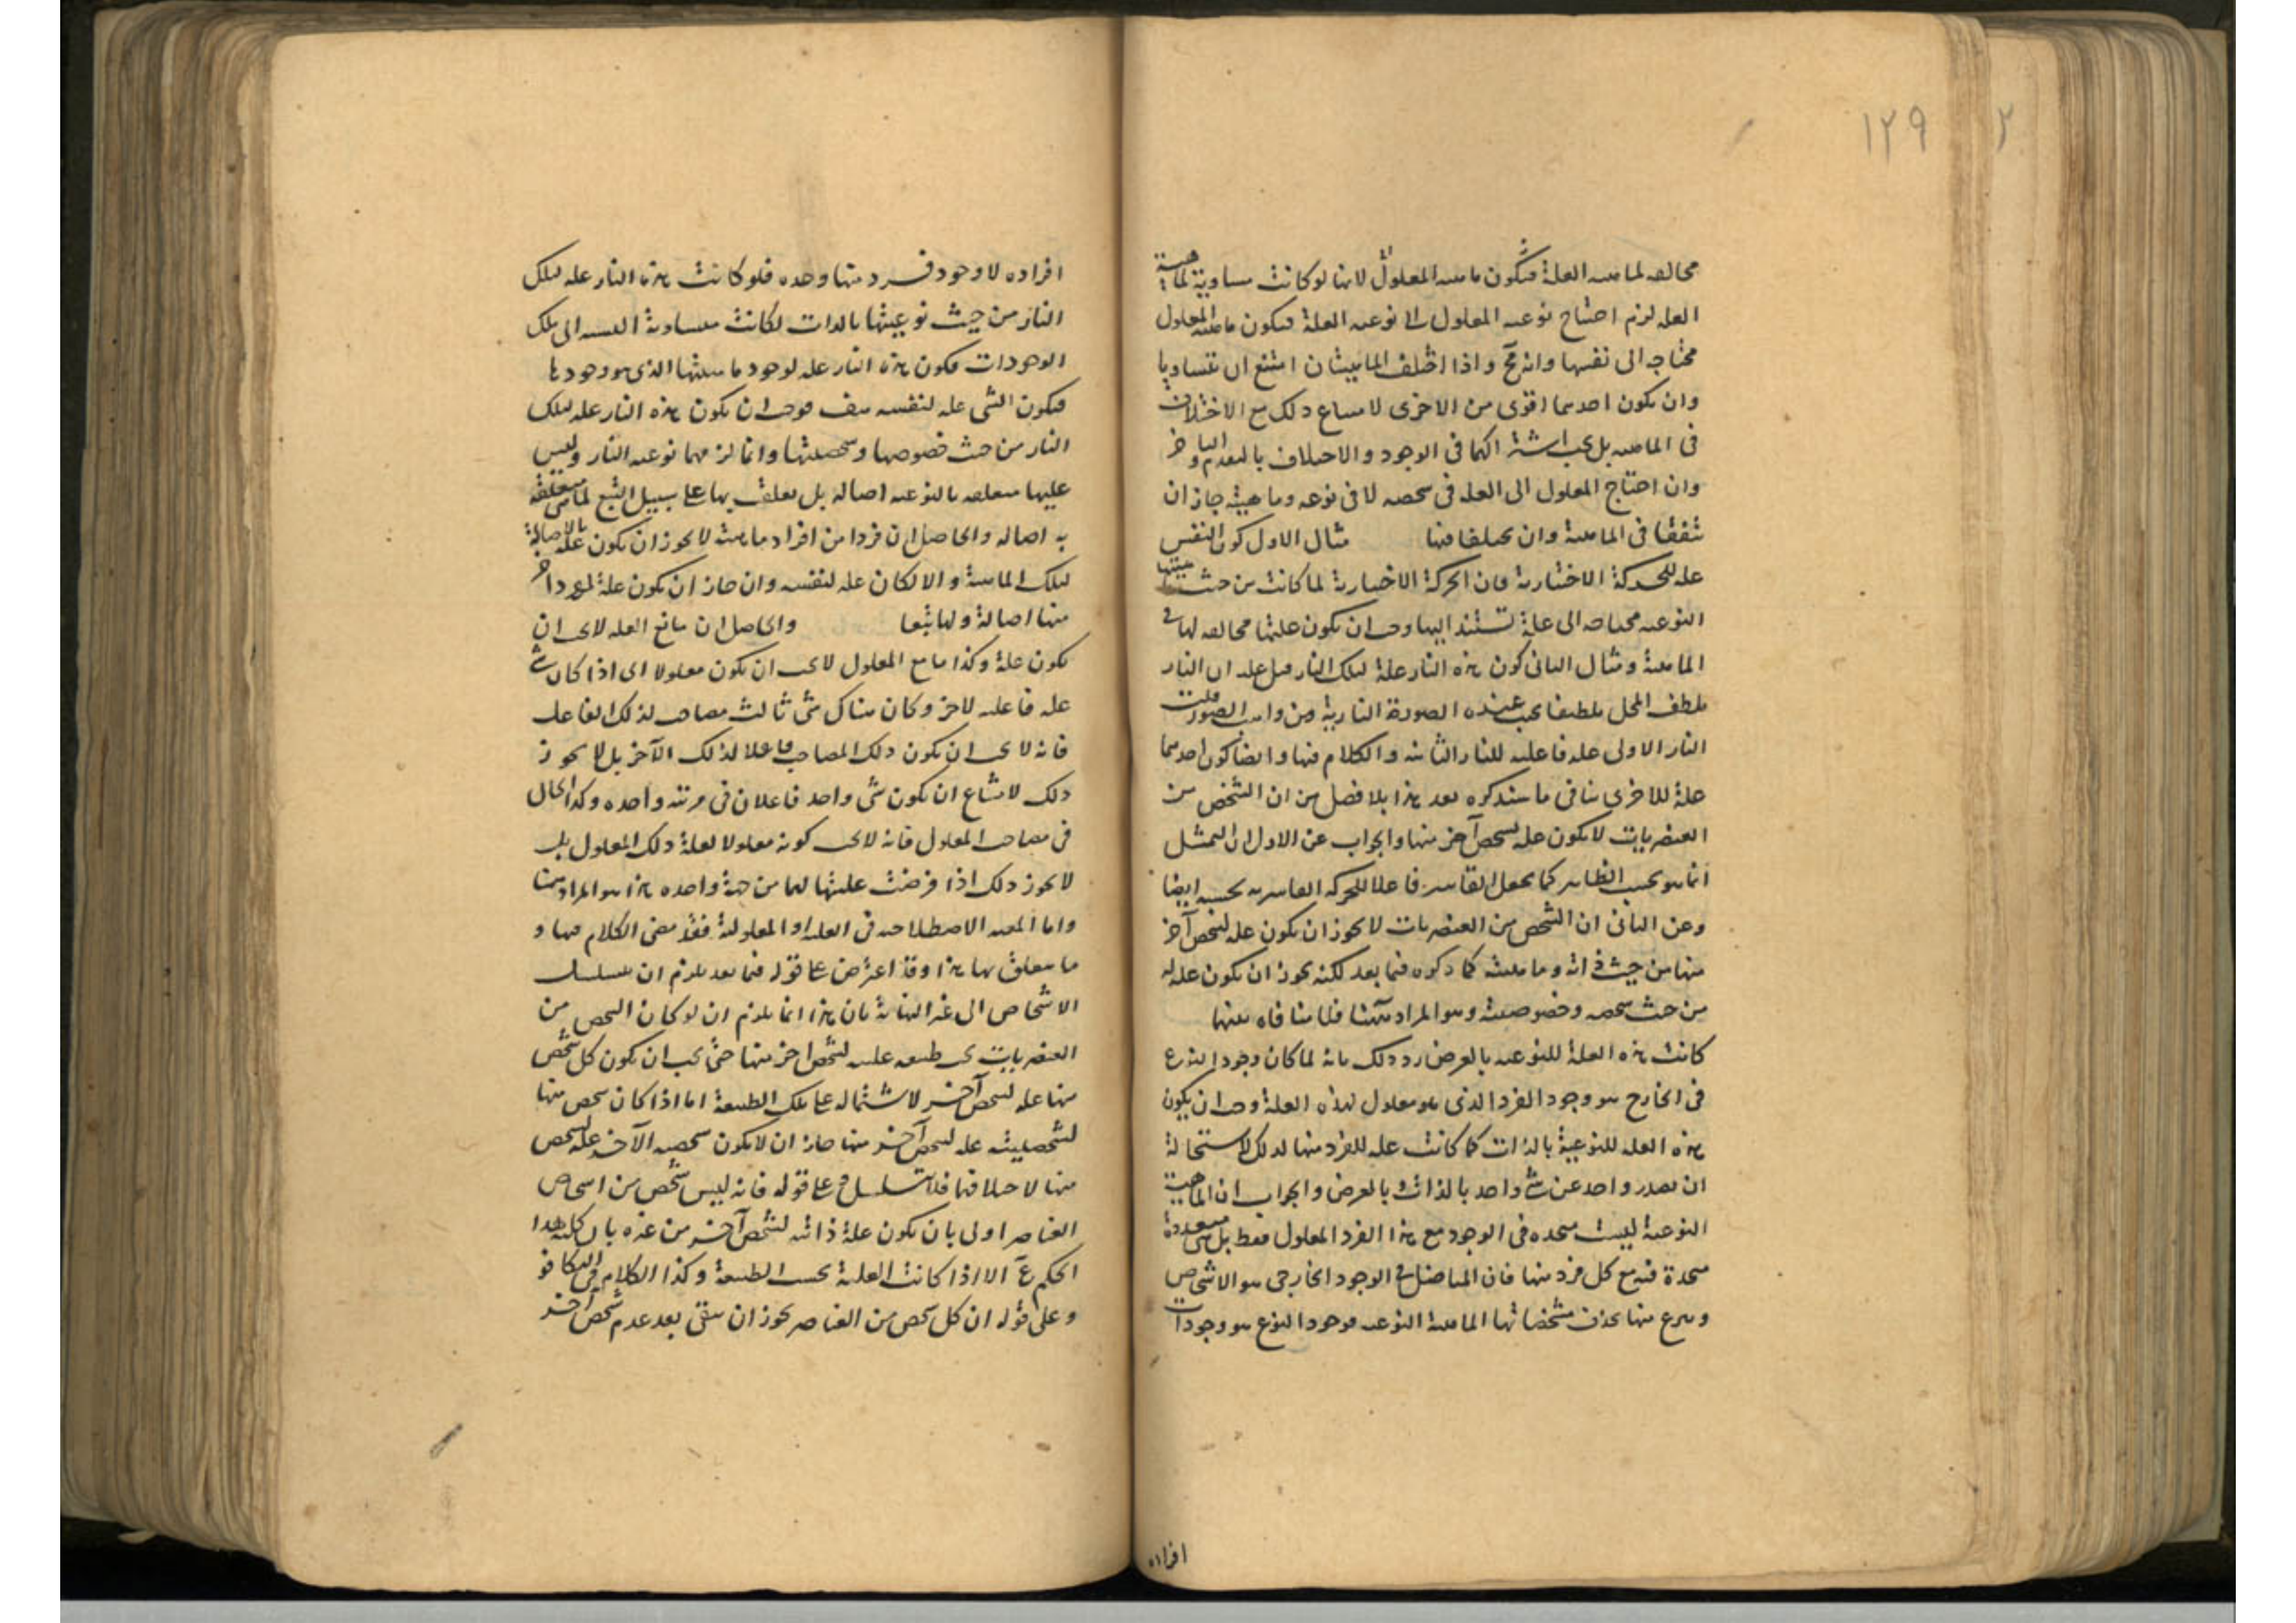 ١٢٩
٢
مخالفه لماهيه العلة فتكون ماهيه المعلول لانها لو كانت مساوية لماهية
العله لزم احتياج نوعيه المعلول الى نوعيه العلة فيكون ماهية المعلول
محتاجه الى نفسها وانه مح واذا اختلف الماهيتان امتنع ان تتساويا
وان يكون احدهما اقوى من الاخرى لامتناع ذلك مع الاختلاف
فى الماهيه بل يجب اشتراكهما فى الوجود والاختلاف بالتقدم والتاخر
وان احتاج المعلول الى العله فى شخصه لا فى نوعه وماهيته جاز ان
تتفقا فى الماهية وان يختلفا فيها مثال الاول كون النفس
عله للحركة الاختيارية فان الحركة الاختيارية لما كانت من حيث
النوعيه محتاجه الى علة تستند اليها وجب ان تكون علتها مخالفه لها فى
الماهية ومثال الثانى كون هذه النار علة لتلك النار قيل عليه ان النار
يلطف المحل تلطيفا يجب عنده الصورة النارية من واهب الصور فليست
النار الاولى عله فاعليه للنار الثانيه والكلام فيها وايضا كون احدهما
علة للاخرى ينافى ما سنذكره بعد هذا بلا فصل من ان الشخص من
العنصريات لا يكون عله لشخص آخر منها والجواب عن الاول ان التمثيل
انما هو بحسب الظاهر كما يجعل القاسر فاعلا للحركه القاسريه بحسبه ايضا
وعن الثانى ان الشخص من العنصريات لا يجوز ان يكون عله لشخص آخر
منها من حيث ذاته وماهيته كما ذكره فيما بعد لكنه يجوز ان يكون عله له
من حيث شخصه وخصوصيته وهو المراد هنا فلا منافاه بينهما
كانت هذه العلة للنوعيه بالعرض رد ذلك بانه لما كان وجود النوع
فى الخارج هو وجود الفرد الذى هو معلول لهذه العلة وجب ان يكون
هذه العله للنوعية بالذات كما كانت عله للفرد منها لذلك لاستحالة
ان يصدر واحد عن شئ واحد بالذات وبالعرض والجواب ان الماهية
النوعية ليست متحده فى الوجود مع هذا الفرد المعلول فقط بل هى متعددة
متحدة فيه مع كل فرد منها فان الحاصل فى الوجود الخارجى هو الاشخاص
وينتزع منها بحذف مشخصاتها الماهية النوعيه فوجود النوع هو وجودات
افراده
افراده لا وجود فرد منها وحده فلو كانت هذه النار عله لتلك
النار من حيث نوعيتها بالذات لكانت متساوية النسبه الى تلك
الوجودات فتكون هذه النار عله لوجود ماهيتها الذى هو وجودها
فيكون الشئ عله لنفسه هف فوجب ان يكون هذه النار عله لتلك
النار من حيث خصوصها وشخصيتها وانما لزم فيها نوعيه النار وليس
عليها متعلقه بالنوعيه اصاله بل تعلقت بها على سبيل التبع لما هى متعلقة
به اصاله والحاصل ان فردا من افراد ماهية لا يجوز ان يكون علة بالاصالة
لتلك الماهية والا لكان عله لنفسه وان جاز ان يكون علة لفرد آخر
منها اصالة ولها تبعا والحاصل ان ما مع العله لا يجب ان
يكون علة وكذا ما مع المعلول لا يجب ان يكون معلولا اى اذا كان شئ
عله فاعليه لآخر وكان هناك شئ ثالث مصاحب لذلك الفاعل
فانه لا يجب ان يكون ذلك المصاحب فاعلا لذلك الآخر بل لا يجوز
ذلك لامتناع ان يكون شئ واحد فاعلان فى مرتبه واحده وكذا الحال
فى مصاحب المعلول فانه لا يجب كونه معلولا لعلة ذلك المعلول بل
لا يجوز ذلك اذا فرضت عليتها لهما من جهة واحده هذا هو المراد هنا
واما المعيه الاصطلاحيه فى العليه او المعلولية فقد مضى الكلام فيها و
ما يتعلق بها هذا وقد اعترض على قوله فيما بعد يلزم ان يتسلسل
الاشخاص الى غير النهاية بان هذا انما يلزم ان لو كان الشخص من
العنصريات بحسب طبيعه علته لشخص اخر منها حتى يجب ان يكون كل شخص
منها عله لشخص آخر لاشتماله على تلك الطبيعة اما اذا كان شخص منها
لشخصيته عله لشخص آخر منها جاز ان لا يكون شخصيه الآخر علة لشخص
منها لاختلافهما فلا تسلسل وعلى قوله فانه ليس شخص من اشخاص
العناصر اولى بان يكون علة ذاتيه لشخص آخر من غيره بان كليه هذا
الحكم مم الا اذا كانت العلية بحسب الطبيعة وكذا الكلام فى التكافؤ
وعلى قوله ان كل شخص من العناصر يجوز ان يبقى بعد عدم شخص آخر